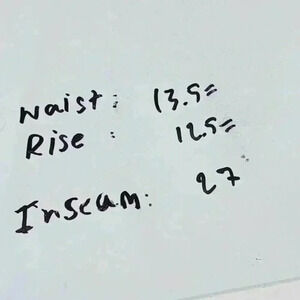 Waist: 13.5=
Rise : 12.5=
Inseam: 27